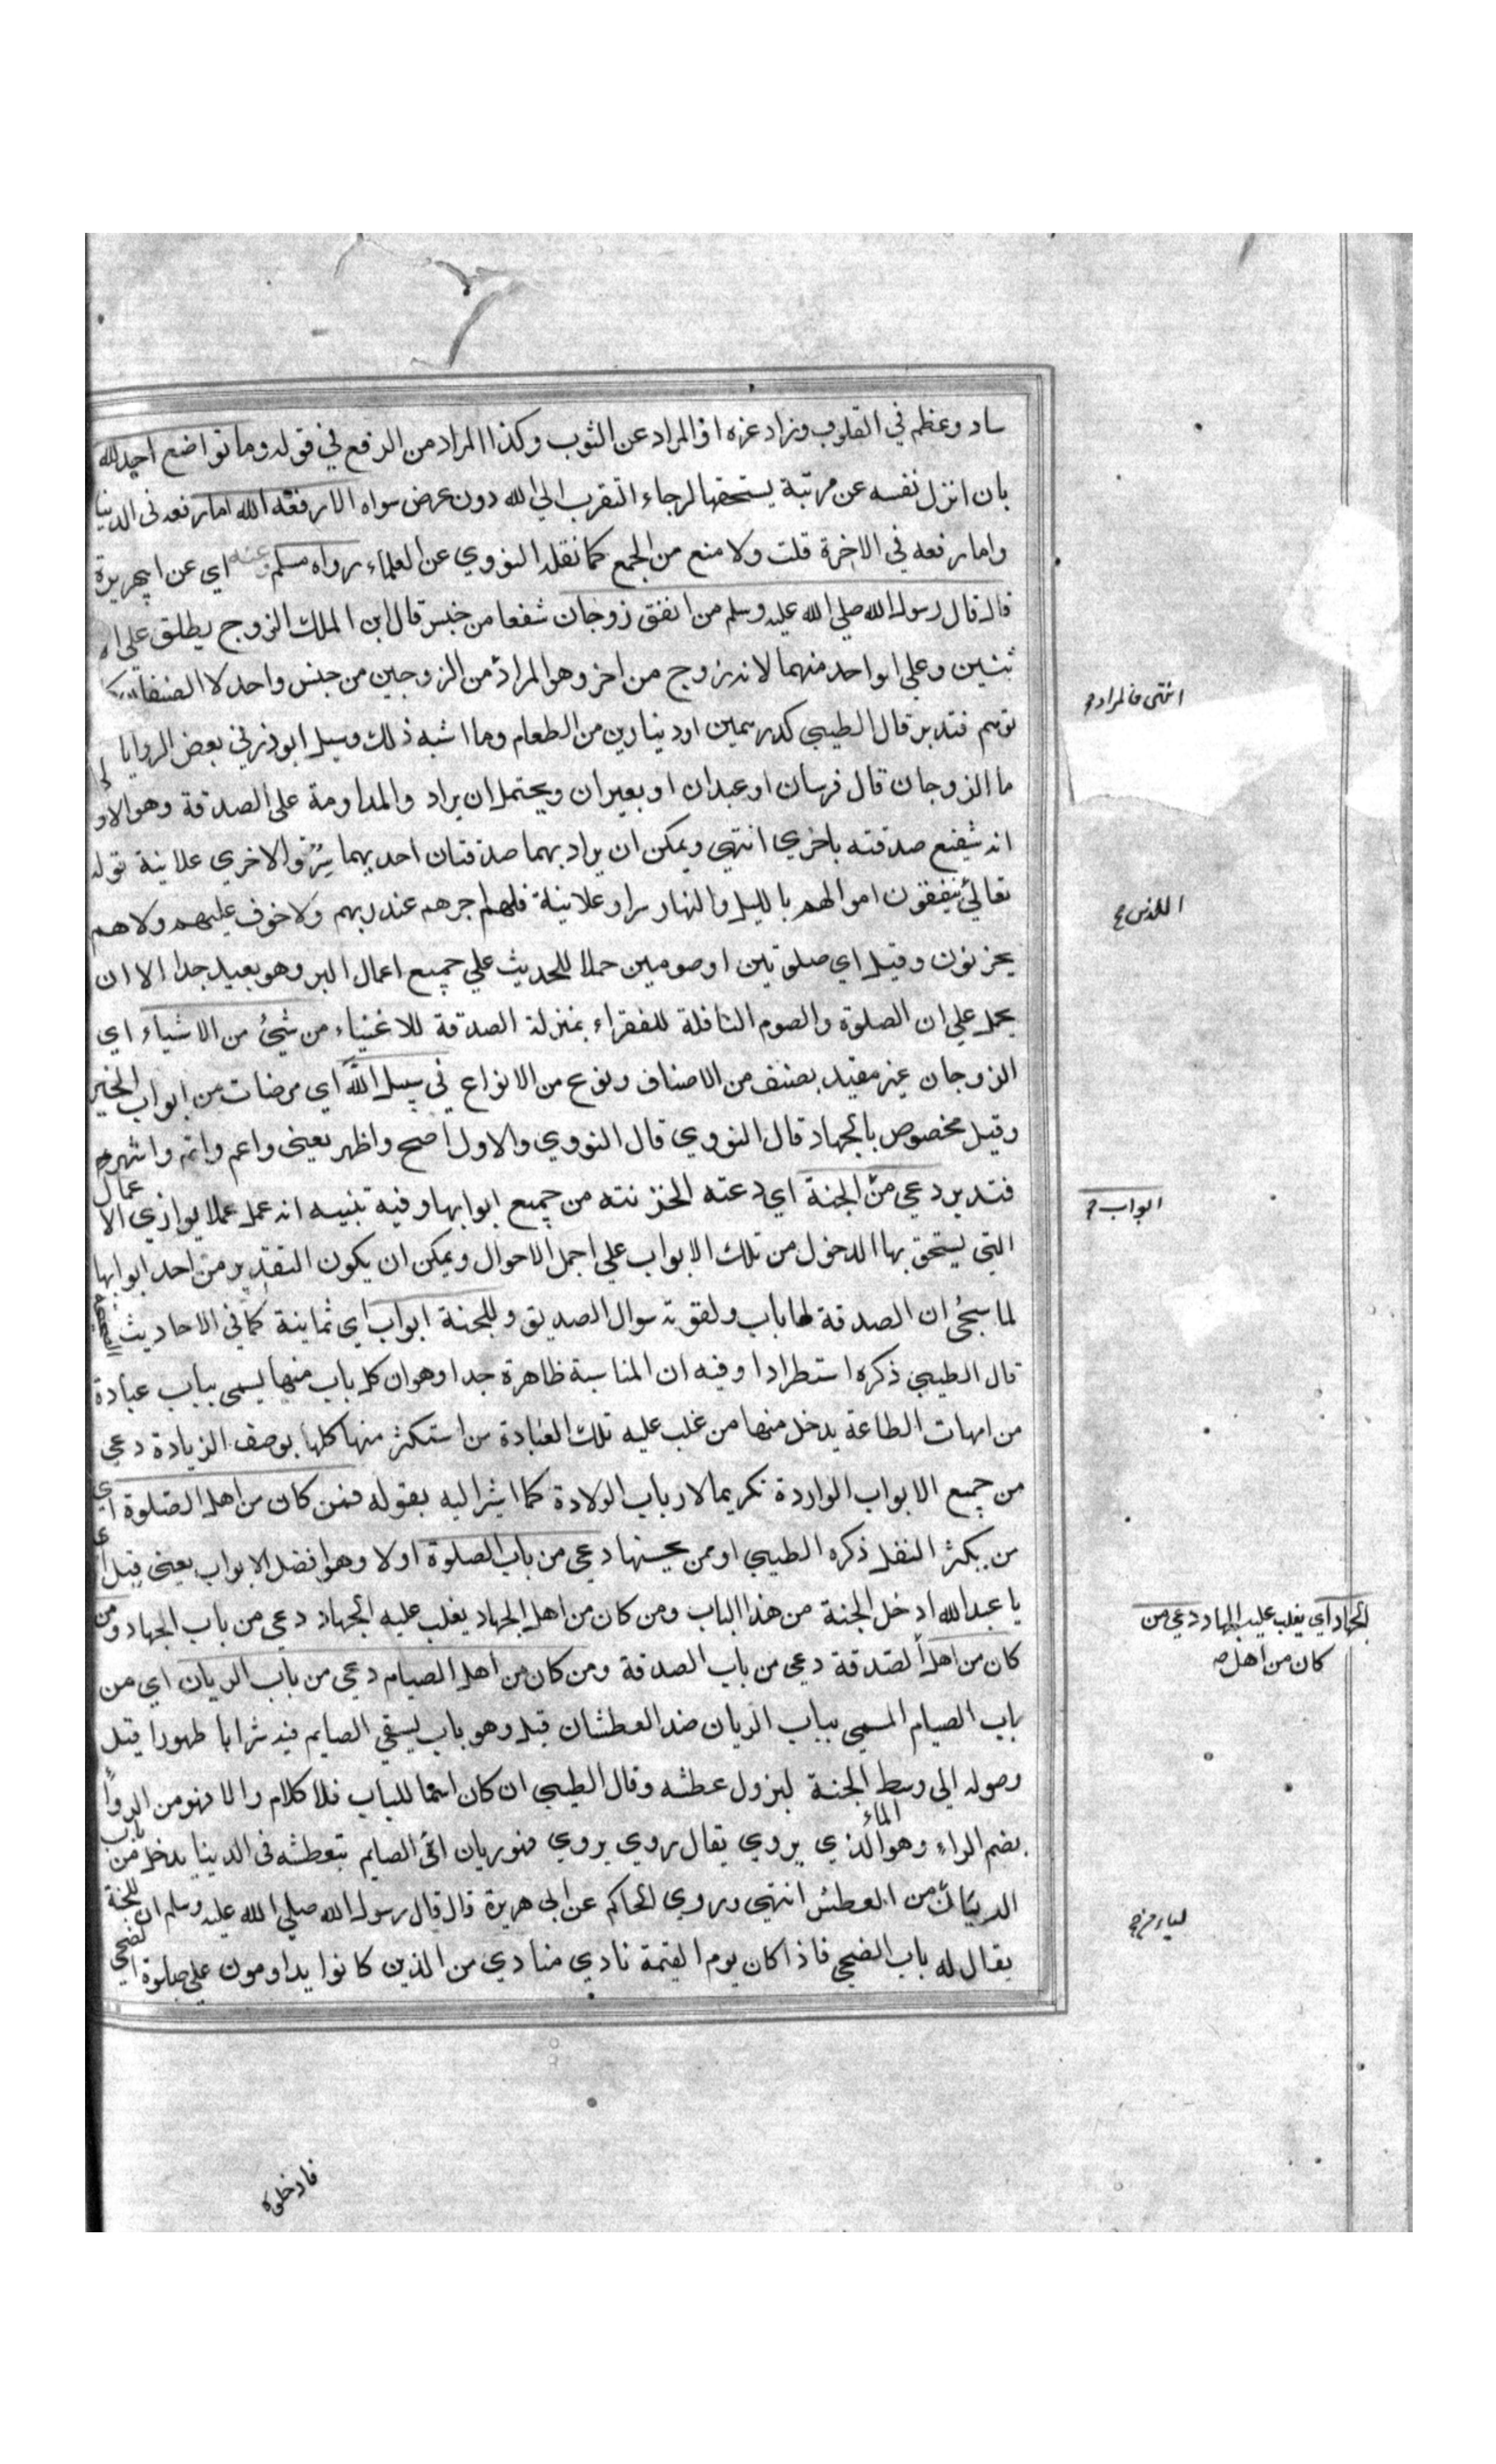 ساد وعظم في القلوب وزاد عزه او المراد عن الثوب وكذا المراد من الرفع في قوله وما تواضع احد لله
بان انزل نفسه عن مرتبة يستحقها لرجاء التقرب الي الله دون عرض سواه الا رفعه الله اما رفعه في الدنيا
واما رفعه في الاخرة قلت ولا منع من الجمع كما نقله النووي عن العلماء رواه مسلم وعنه اي عن ابي هريرة
قال قال رسول الله صلي الله عليه وسلم من انفق زوجان شفعا من جنس قال ابن الملك الزوج يطلق علي الا
ثنين وعلي الواحد منهما لانه زوج من اخر وهو المراد من الزوجين من جنس واحد لا الصنفان كما
توهم فتدبر قال الطيبي كدرهمين او دينارين من الطعام وما اشبه ذلك وسيل ابو ذر في بعض الروايا
ما الزوجان قال فرسان او عبدان او بعيران ويحتمل ان يراد والمداومة علي الصدقة وهو الاولي
انه شيفع صدقته باخري انتهي ويمكن ان يراد بهما صدقتان احديهما سر والاخري علانية قوله
تعالي ينفقون اموالهم بالليل والنهار سرا وعلانية فلهم اجرهم عند ربهم ولا خوف عليهم ولا هم
يحزنون وقيل اي صلوتين او صومين حملا للحديث علي جميع اعمال البر وهو بعيد جدا الا ان
يحمل علي ان الصلوة والصوم النافلة للفقراء بمنزلة الصدقة للاغنياء من شيئ من الاشياء اي
الزوجان غير مقيد بصنف من الاصناف ونوع من الانواع في سبيل الله اي مرضات من ابواب الخير
وقيل مخصوص بالجهاد قال النووي قال النووي والاول اصح واظهر يعني واعم واتم واشهر
فتدبر دعي من الجنة اي دعته الخزنته من جميع ابوابها وفيه تنبيه انه عمل عملا يوازي الا عمال
التي يستحق بها الدخول من تلك الابواب علي اجمل الاحوال ويمكن ان يكون التقدير من احد ابوابها
لما سيجئ ان الصدقة لها باب ولقوته سوال الصديق وللجنة ابواب اي ثمانية كما في الاحاديث الصحيحة
قال الطيبي ذكره استطرادا وفيه ان المناسبة ظاهرة جدا وهو ان كل باب منها يسمي بباب عبادة
من امهات الطاعة يدخل منها من غلب عليه تلك العبادة من استكثر منها كلها بوصف الزيادة دعي
من جميع الابواب الواردة تكريما لارباب الولادة كما اشير اليه بقوله فمن كان من اهل الصلوة اي
من يكثر النفل ذكره الطيبي او ممن يحسنها دعي من باب الصلوة اولا وهو افضل الابواب يعني قيل اي
يا عبد الله ادخل الجنة من هذا الباب ومن كان من اهل الجهاد يغلب عليه الجهاد دعي من باب الجهاد ومن
كان من اهل الصدقة دعي من باب الصدقة ومن كان من اهل الصيام دعي من باب الريان اي من
باب الصيام المسمي بباب الريان ضد العطشان قيل وهو باب يسقي الصايم فيه شرابا طهورا قبل
وصوله الي وسط الجنة ليزول عطشه وقال الطيبي ان كان اسما للباب فلا كلام والا فهو من الرواء
بضم الراء وهو الماء الذي يروي يقال روي يروي فهو ريان اي الصايم بتعطشه في الدنيا يدخل من باب
الريان من العطش انتهي وروي الحاكم عن ابي هريرة قال قال رسول الله صلي الله عليه وسلم ان للجنة
يقال له باب الضحي فاذا كان يوم القيمة نادي منادي من الذين كانوا يداومون علي صلوة الضحي
فادخلوه
انتهي فالمراد
اللذين
ابواب
الجهاد اي يغلب عليه الجهاد دعي من
كان من اهل